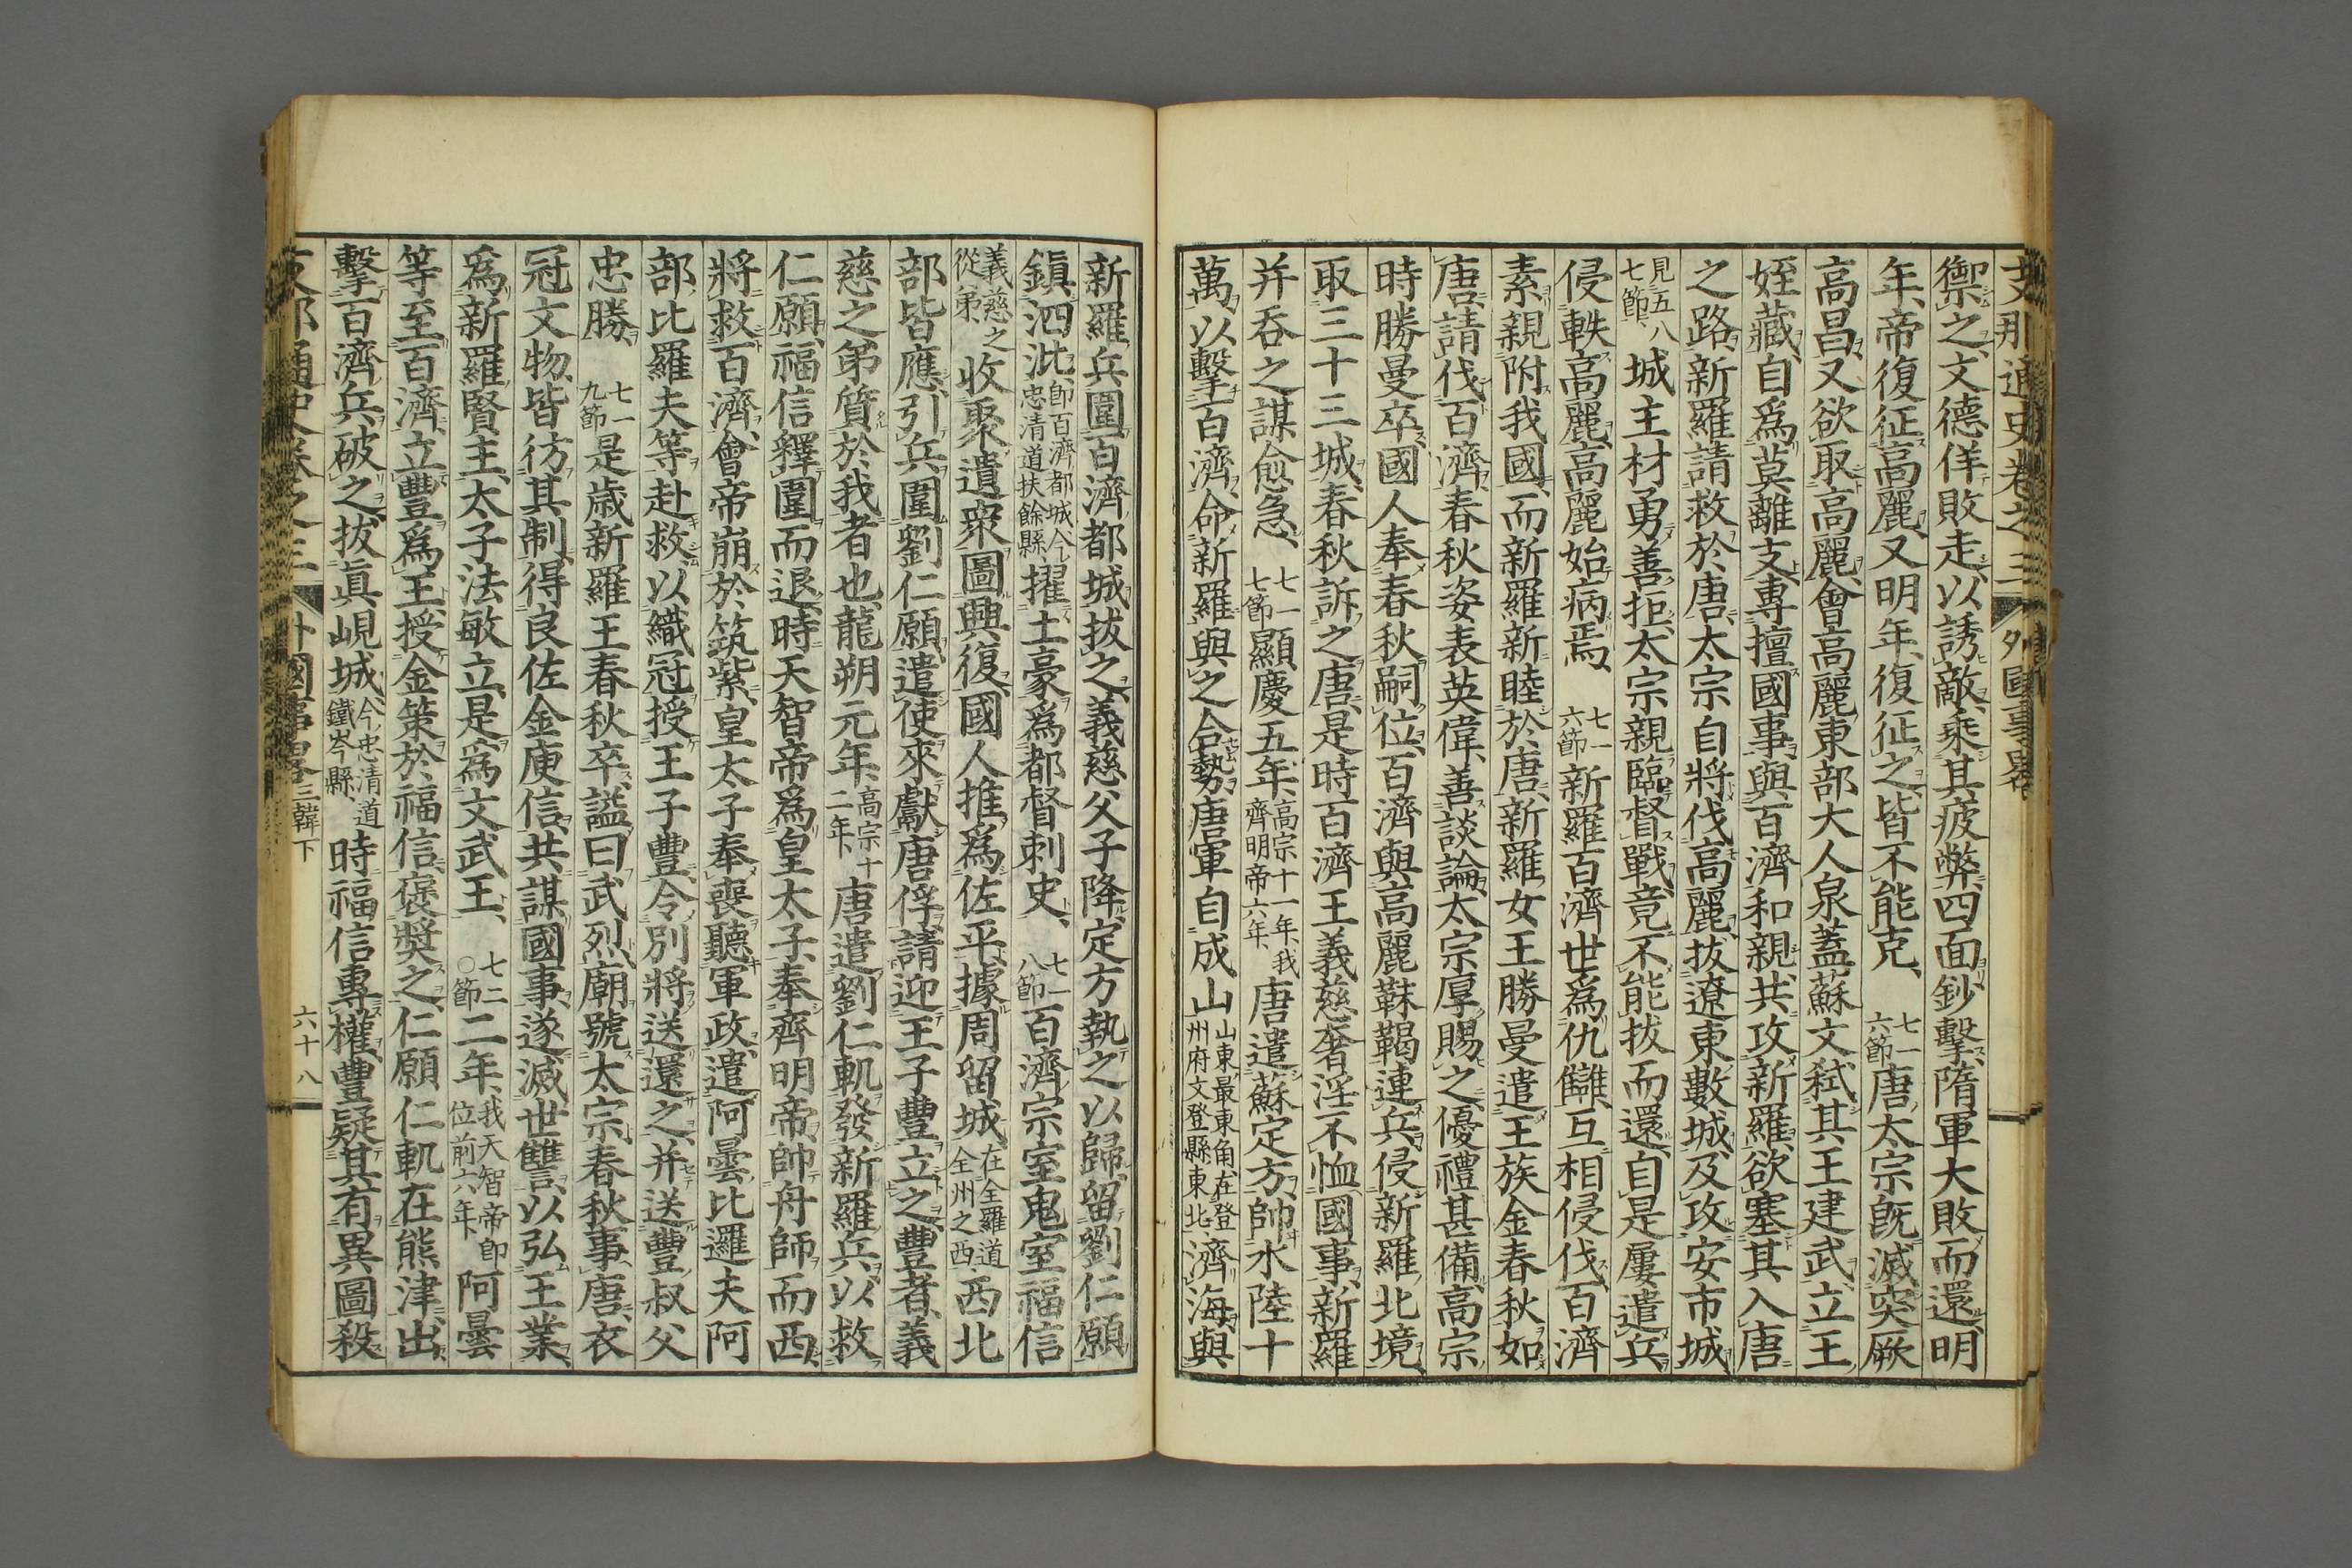 支那通史卷之三 外國事畧
禦之、文德佯敗走、以誘敵、乘其疲弊、四面鈔擊、隋軍大敗而還、明
年、帝復征高麗、又明年、復征之、皆不能克、七一六節唐太宗旣滅突厥
高昌、又欲取高麗、會高麗東部大人泉蓋蘇文弑其王建武、立王
姪藏、自爲莫離支、專擅國事、與百濟和親、共攻新羅、欲塞其入唐
之路、新羅請救於唐、太宗自將伐高麗、拔遼東數城、及攻安市城、
見五八七節、城主材勇善拒、太宗親臨督戰、竟不能拔而還、自是屢遣兵
侵軼高麗、高麗始病焉、七一六節新羅百濟世爲仇讎、互相侵伐、百濟
素親附我國、而新羅新睦於唐、新羅女王勝曼遣王族金春秋如
唐、請伐百濟、春秋姿表英偉、善談論、太宗厚賜之、優禮甚備、高宗
時勝曼卒、國人奉春秋嗣位、百濟與高麗靺鞨連兵侵新羅北境、
取三十三城、春秋訴之唐、是時百濟王義慈奢淫、不恤國事、新羅
并呑之謀愈急、七一七節顯慶五年、高宗十一年、我齊明帝六年、唐遣蘇定方、帥水陸十
萬、以擊百濟、命新羅與之合勢、唐軍自成山山東最東角、在登州府文登縣東北濟海、與
新羅兵圍百濟都城、拔之、義慈父子降、定方執之以歸、留劉仁願
鎭泗沘、卽百濟都城、今忠清道扶餘縣擢土豪爲都督刺史、七一八節百濟宗室鬼室福信
義慈之從弟、收聚遺衆、圖興復、國人推爲佐平、據周留城、在全羅道全州之西、西北
部皆應、引兵圍劉仁願、遣使來獻唐俘、請迎王子豐立之、豐者、義
慈之弟、質於我者也、龍朔元年、高宗十二年、唐遣劉仁軌發新羅兵、以救
仁願、福信釋圍而退、時天智帝爲皇太子、奉齊明帝、帥舟師而西、
將救百濟、會帝崩於筑紫、皇太子奉喪聽軍政、遣阿曇比邏夫阿
部比羅夫等赴救、以織冠授王子豐、令別將送還之、并送豐叔父
忠勝、七一九節是歲新羅王春秋卒、謚曰武烈、廟號太宗、春秋事唐、衣
冠文物、皆彷其制、得良佐金庾信、共謀國事、遂滅世讐、以弘王業、
爲新羅賢主、太子法敏立、是爲文武王、七二〇節二年、我天智帝卽位前六年、阿曇
等至百濟、立豐爲王、授金策於福信、褒奬之、仁願仁軌在熊津、出
擊百濟兵、破之、拔眞峴城、今忠清道鐵岑縣、時福信專權、豐疑其有異圖、殺
支那通史卷之三 外國事畧三韓下 六十八